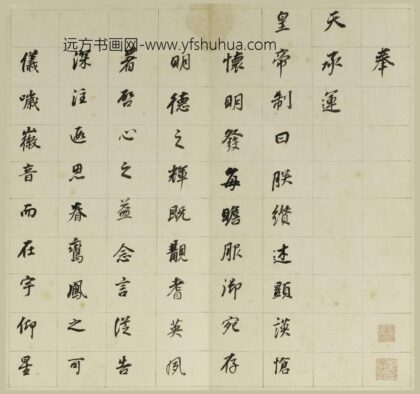 远方书画网-www.yfshuhua.com
奉
天承運
皇帝制曰朕纘述顯謨愴
懷明發每瞻服御宛存
明德之輝既耆英夙
著啓心之益念言從告
深注遐思眷鸞鳳之可
儀噦徽音而在宇仰星